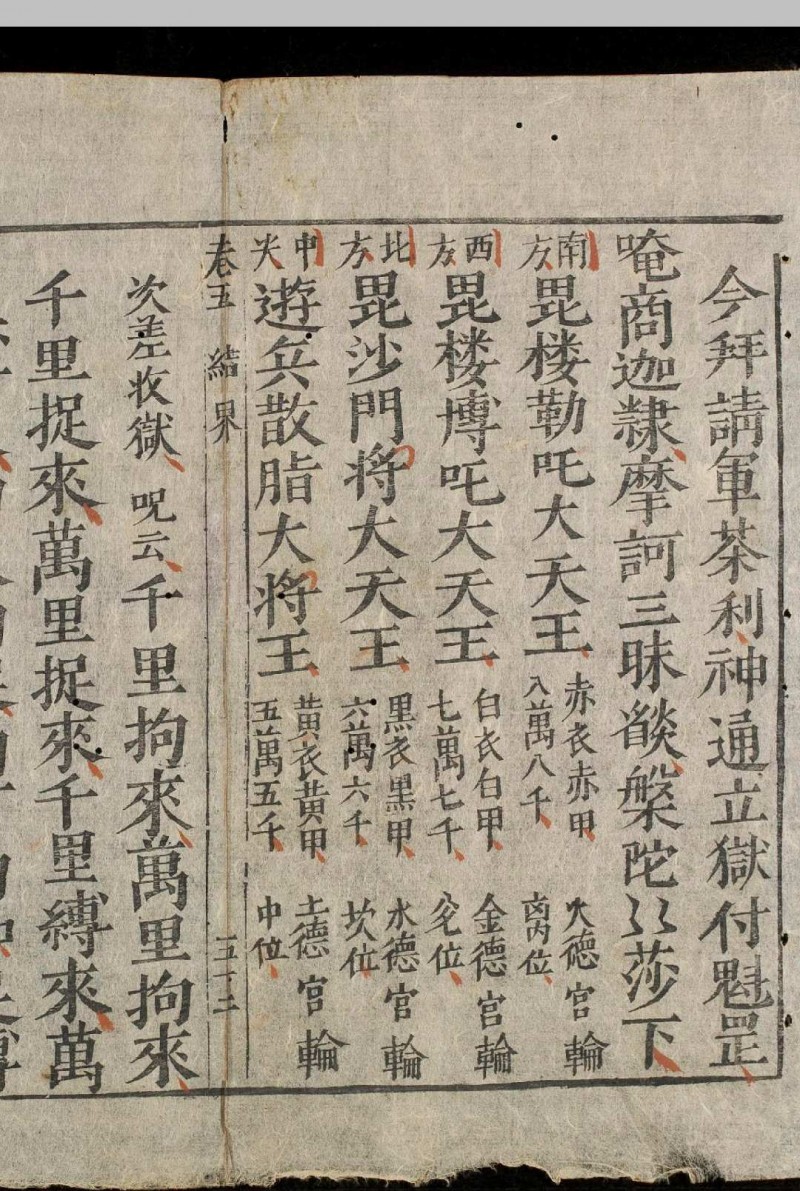 今拜請軍荼利神通立獄付魁罡
唵商迦隸摩訶三昧𦦨槃陀〻莎下
南方毘楼勒吒大天王 赤衣赤甲八萬八千 火德宮輪离丙位
西方毘楼博吒大天王 白衣白甲七萬七千 金德宮輪兊位
北方毘沙門将大天王 黑衣黑甲六萬六千 水德宮輪坎位
中央遊兵散脂大将王 黃衣黃甲五萬五千 土德宮輪中位
卷五 結界 五十二
次差收獄 呪云 千里拘來萬里拘來
千里捉來萬里捉來千里縛來萬